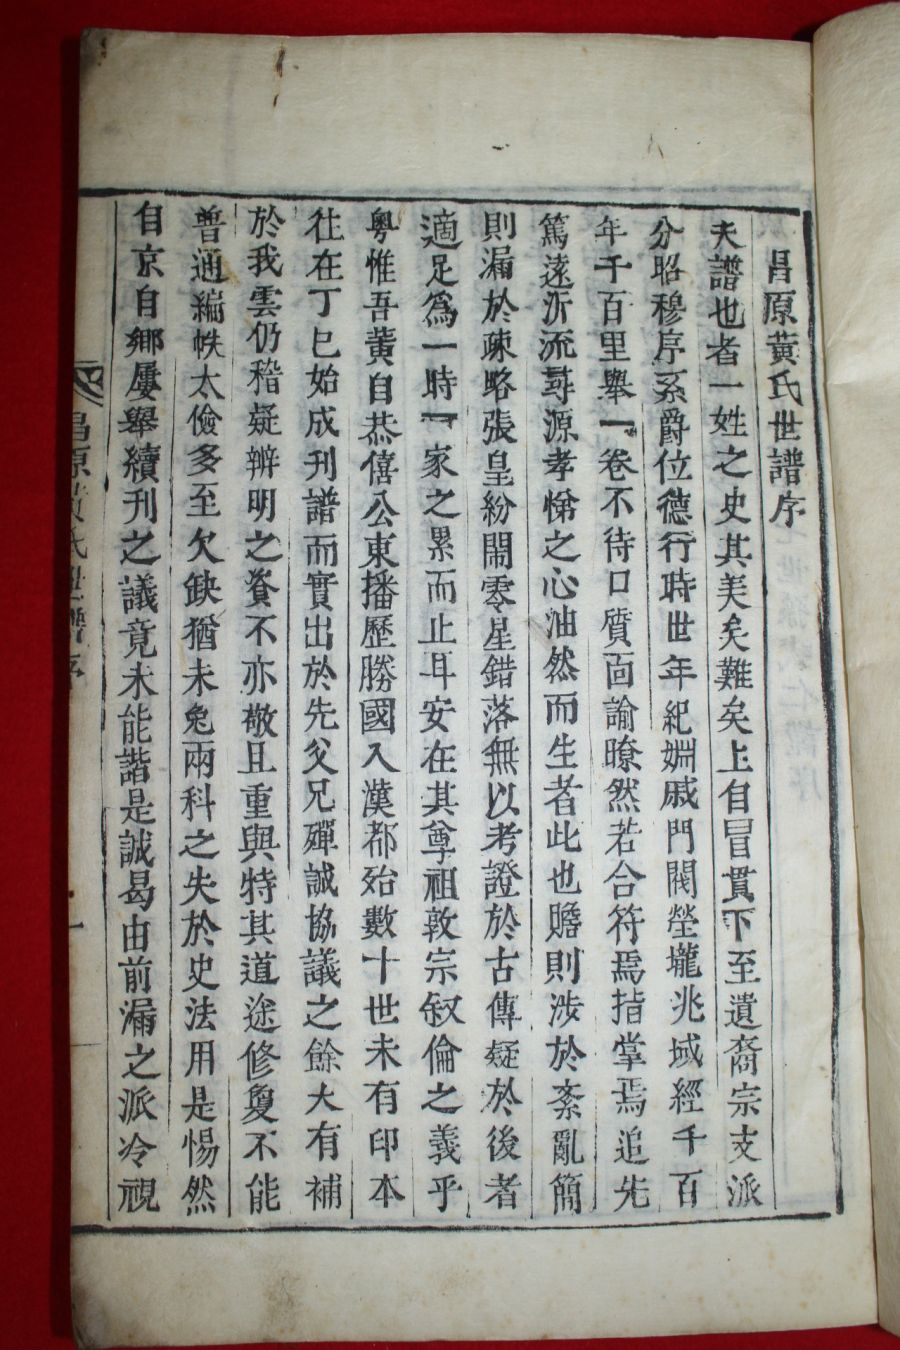 昌原黃氏世譜序
夫譜也者一姓之史其美矣難矣上自冒貫下至遺裔宗支派
分昭穆序系爵位德行時世年紀姻戚門閥塋壠兆域經千百
年千百里舉一卷不待口質面諭瞭然若合符焉指掌焉追先
篤遠泝流尋源孝悌之心油然而生者此也贍則涉於紊亂簡
則漏於疎略張皇紛鬧零星錯落無以考證於古傳疑於後者
適足爲一時一家之累而止耳安在其尊祖敦宗叙倫之義乎
粤惟吾黃自恭僖公東播歷勝國入漢都殆數十世未有印本
往在丁巳始成刊譜而實出於先父兄殫誠協議之餘大有補
於我雲仍稽疑辨明之資不亦敬且重與特其道途修敻不能
普通編帙太儉多至欠缺猶未免兩科之失於史法用是惕然
自京自鄉屢舉續刊之議竟未能諧是誠曷由前漏之派冷視
昌原黃氏世譜序
一